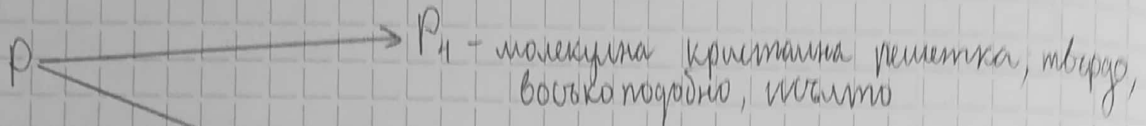 P → P₄ - молекулна кристална решетка, твърдо,
восъкоподобно,